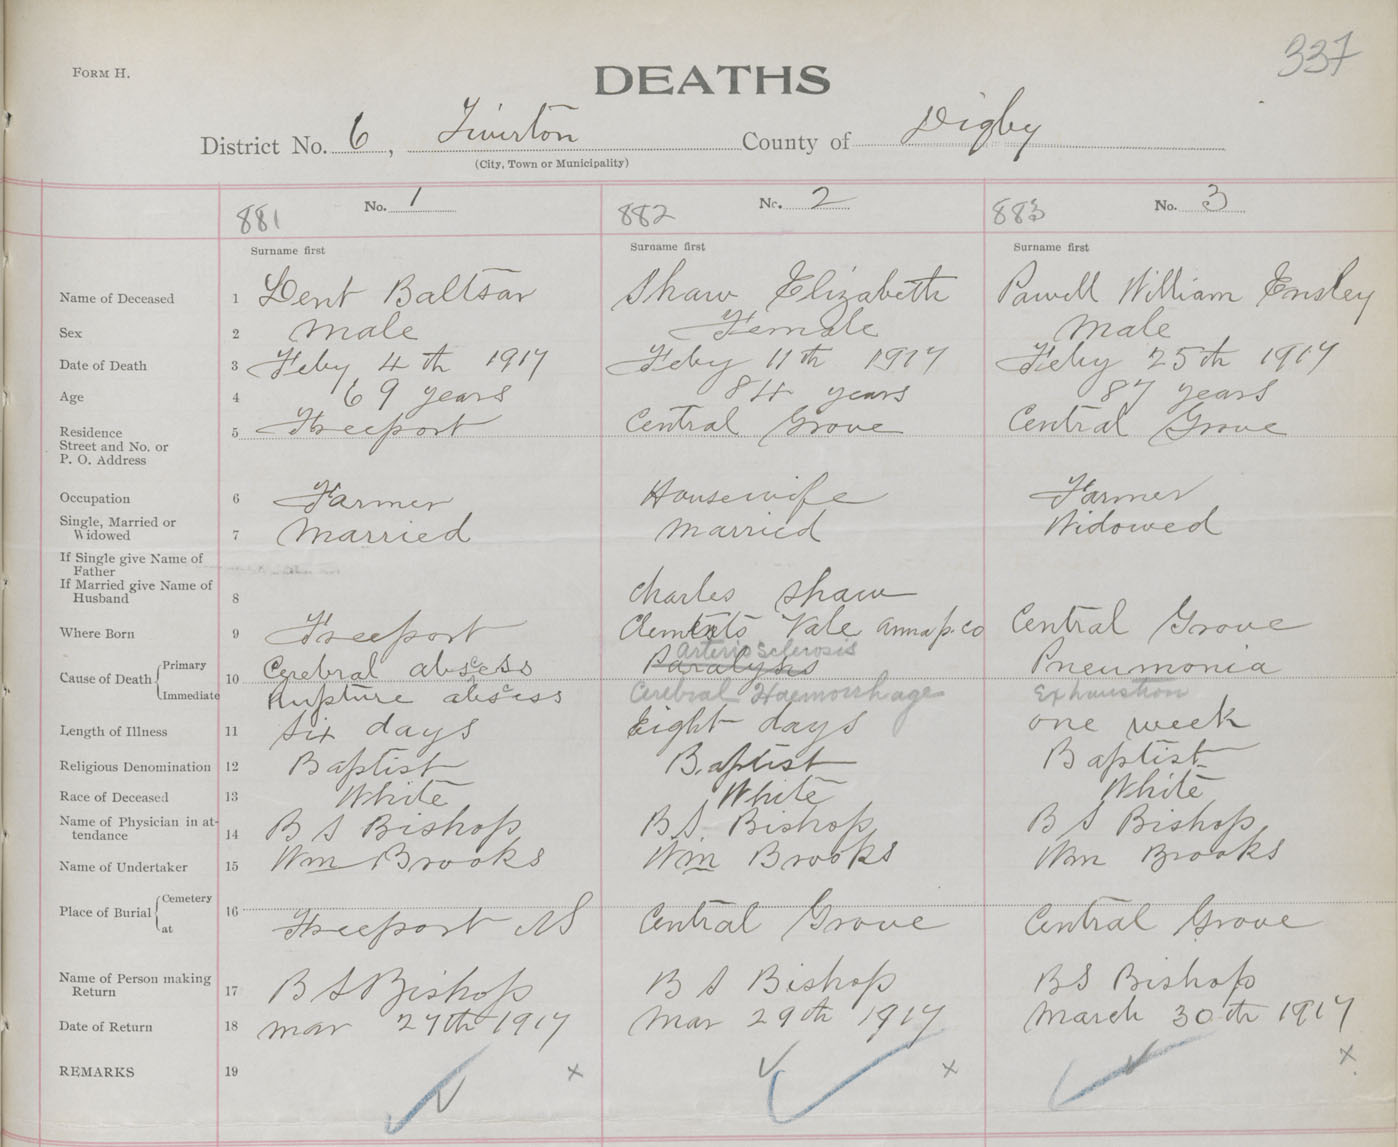 337
FORM H.
DEATHS
District No. 6, Tiverton County of Digby
(City, Town or Municipality)
881 No. 1 882 No. 2 883 No. 3
Surname first Surname first Surname first
Name of Deceased 1 Dent Baltsar Shaw Elizabeth Powell William Ensley
Sex 2 Male Female Male
Date of Death 3 Feby 4th 1917 Feby 11th 1917 Feby 25th 1917
Age 4 69 years 84 years 87 years
Residence Street and No. or P. O. Address 5 Freeport Central Grove Central Grove
Occupation 6 Farmer Housewife Farmer
Single, Married or Widowed 7 Married Married Widowed
If Single give Name of Father
If Married give Name of Husband 8 Charles Shaw
Where Born 9 Freeport Clements Vale Annap. Co Central Grove
Arterio Sclerosis
Cause of Death Primary 10 Cerebral abscess Paralysis Pneumonia
Immediate Rupture abscess Cerebral Haemorrhage Exhaustion
Length of Illness 11 Six days Eight days one week
Religious Denomination 12 Baptist Baptist Baptist
Race of Deceased 13 White White White
Name of Physician in attendance 14 B S Bishop B S Bishop B S Bishop
Name of Undertaker 15 Wm Brooks Wm Brooks Wm Brooks
Place of Burial Cemetery at 16 Freeport NS Central Grove Central Grove
Name of Person making Return 17 B S Bishop B S Bishop BS Bishop
Date of Return 18 Mar 27th 1917 Mar 29th 1917 March 30th 1917
REMARKS 19 x x x